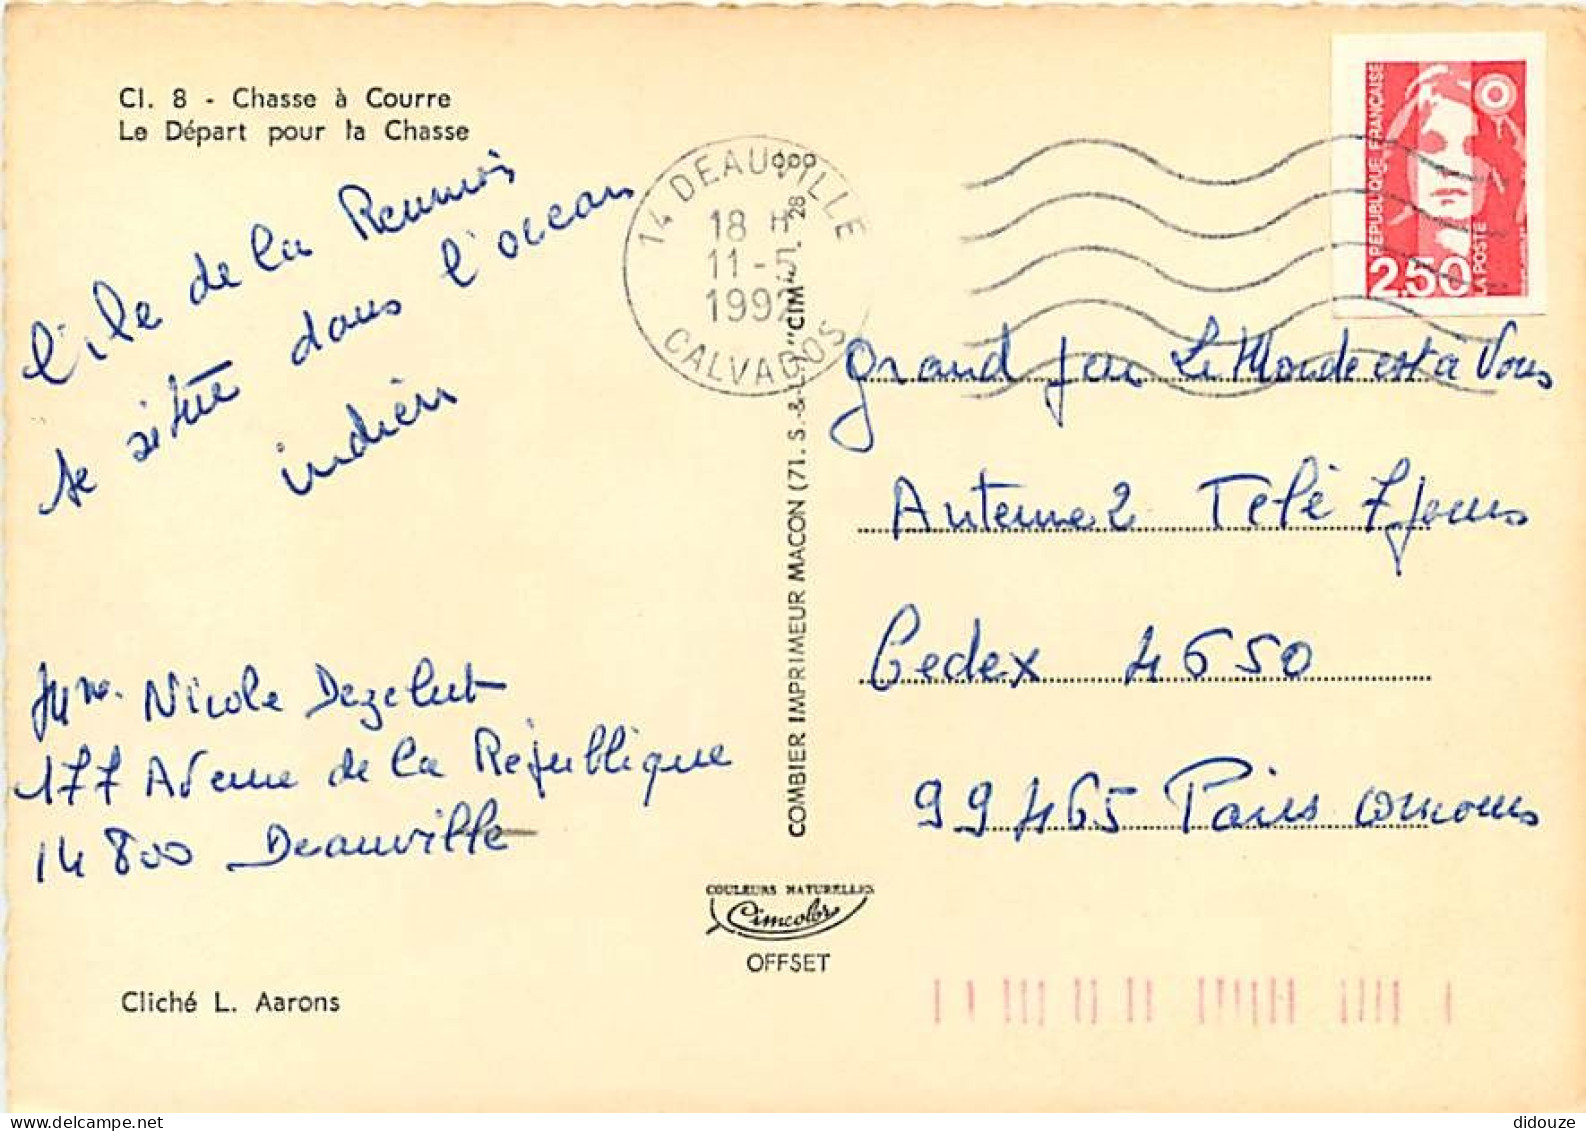 Cl. 8 - Chasse à Courre
Le Départ pour la Chasse
l'ile de la Reunion
se situe dans l'ocean
indien
Mme Nicole Dezelut
177 Avenue de la République
14 800 Deauville
Cliché L. Aarons
14 DEAUVILLE
18 H
11-5
1992
CALVADOS
COMBIER IMPRIMEUR MACON (71. S.-&-L.) "CIM" T. 28
COULEURS NATURELLES
Cimcolor
OFFSET
RÉPUBLIQUE FRANÇAISE
2,50
LA POSTE
Grand jeu Le Monde est a Vous
Antenne 2 Telé 7 jours
Cedex 4650
99465 Paris concours
didouze